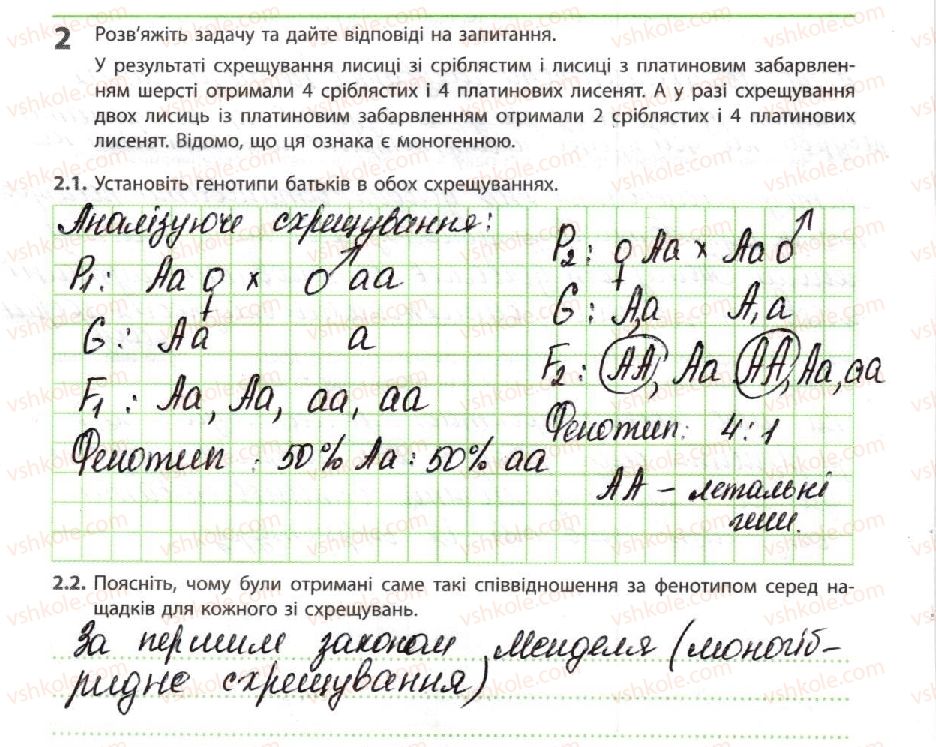 2 Розв'яжіть задачу та дайте відповіді на запитання.
У результаті схрещування лисиці зі сріблястим і лисиці з платиновим забарвлен-
ням шерсті отримали 4 сріблястих і 4 платинових лисенят. А у разі схрещування
двох лисиць із платиновим забарвленням отримали 2 сріблястих і 4 платинових
лисенят. Відомо, що ця ознака є моногенною.
2.1. Установіть генотипи батьків в обох схрещуваннях.
Аналізуюче схрещування:
P₁: Аа ♀ x ♂ аа
G: Аа а
F₁: Аа, Аа, аа, аа
Фенотип: 50% Аа : 50% аа
P₂: ♀ Аа x Аа ♂
G: А,а А,а
F₂: АА, Аа АА, Аа, аа
Фенотип: 4:1
АА – летальні
гени.
2.2. Поясніть, чому були отримані саме такі співвідношення за фенотипом серед на-
щадків для кожного зі схрещувань.
За першим законом Менделя (моногіб-
ридне схрещування)
vshkole.com